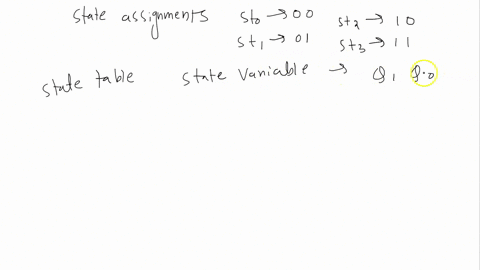 state assignments st0 → 00 st2 → 10
st1 → 01 st3 → 11
state table state variable → Q1 Q0